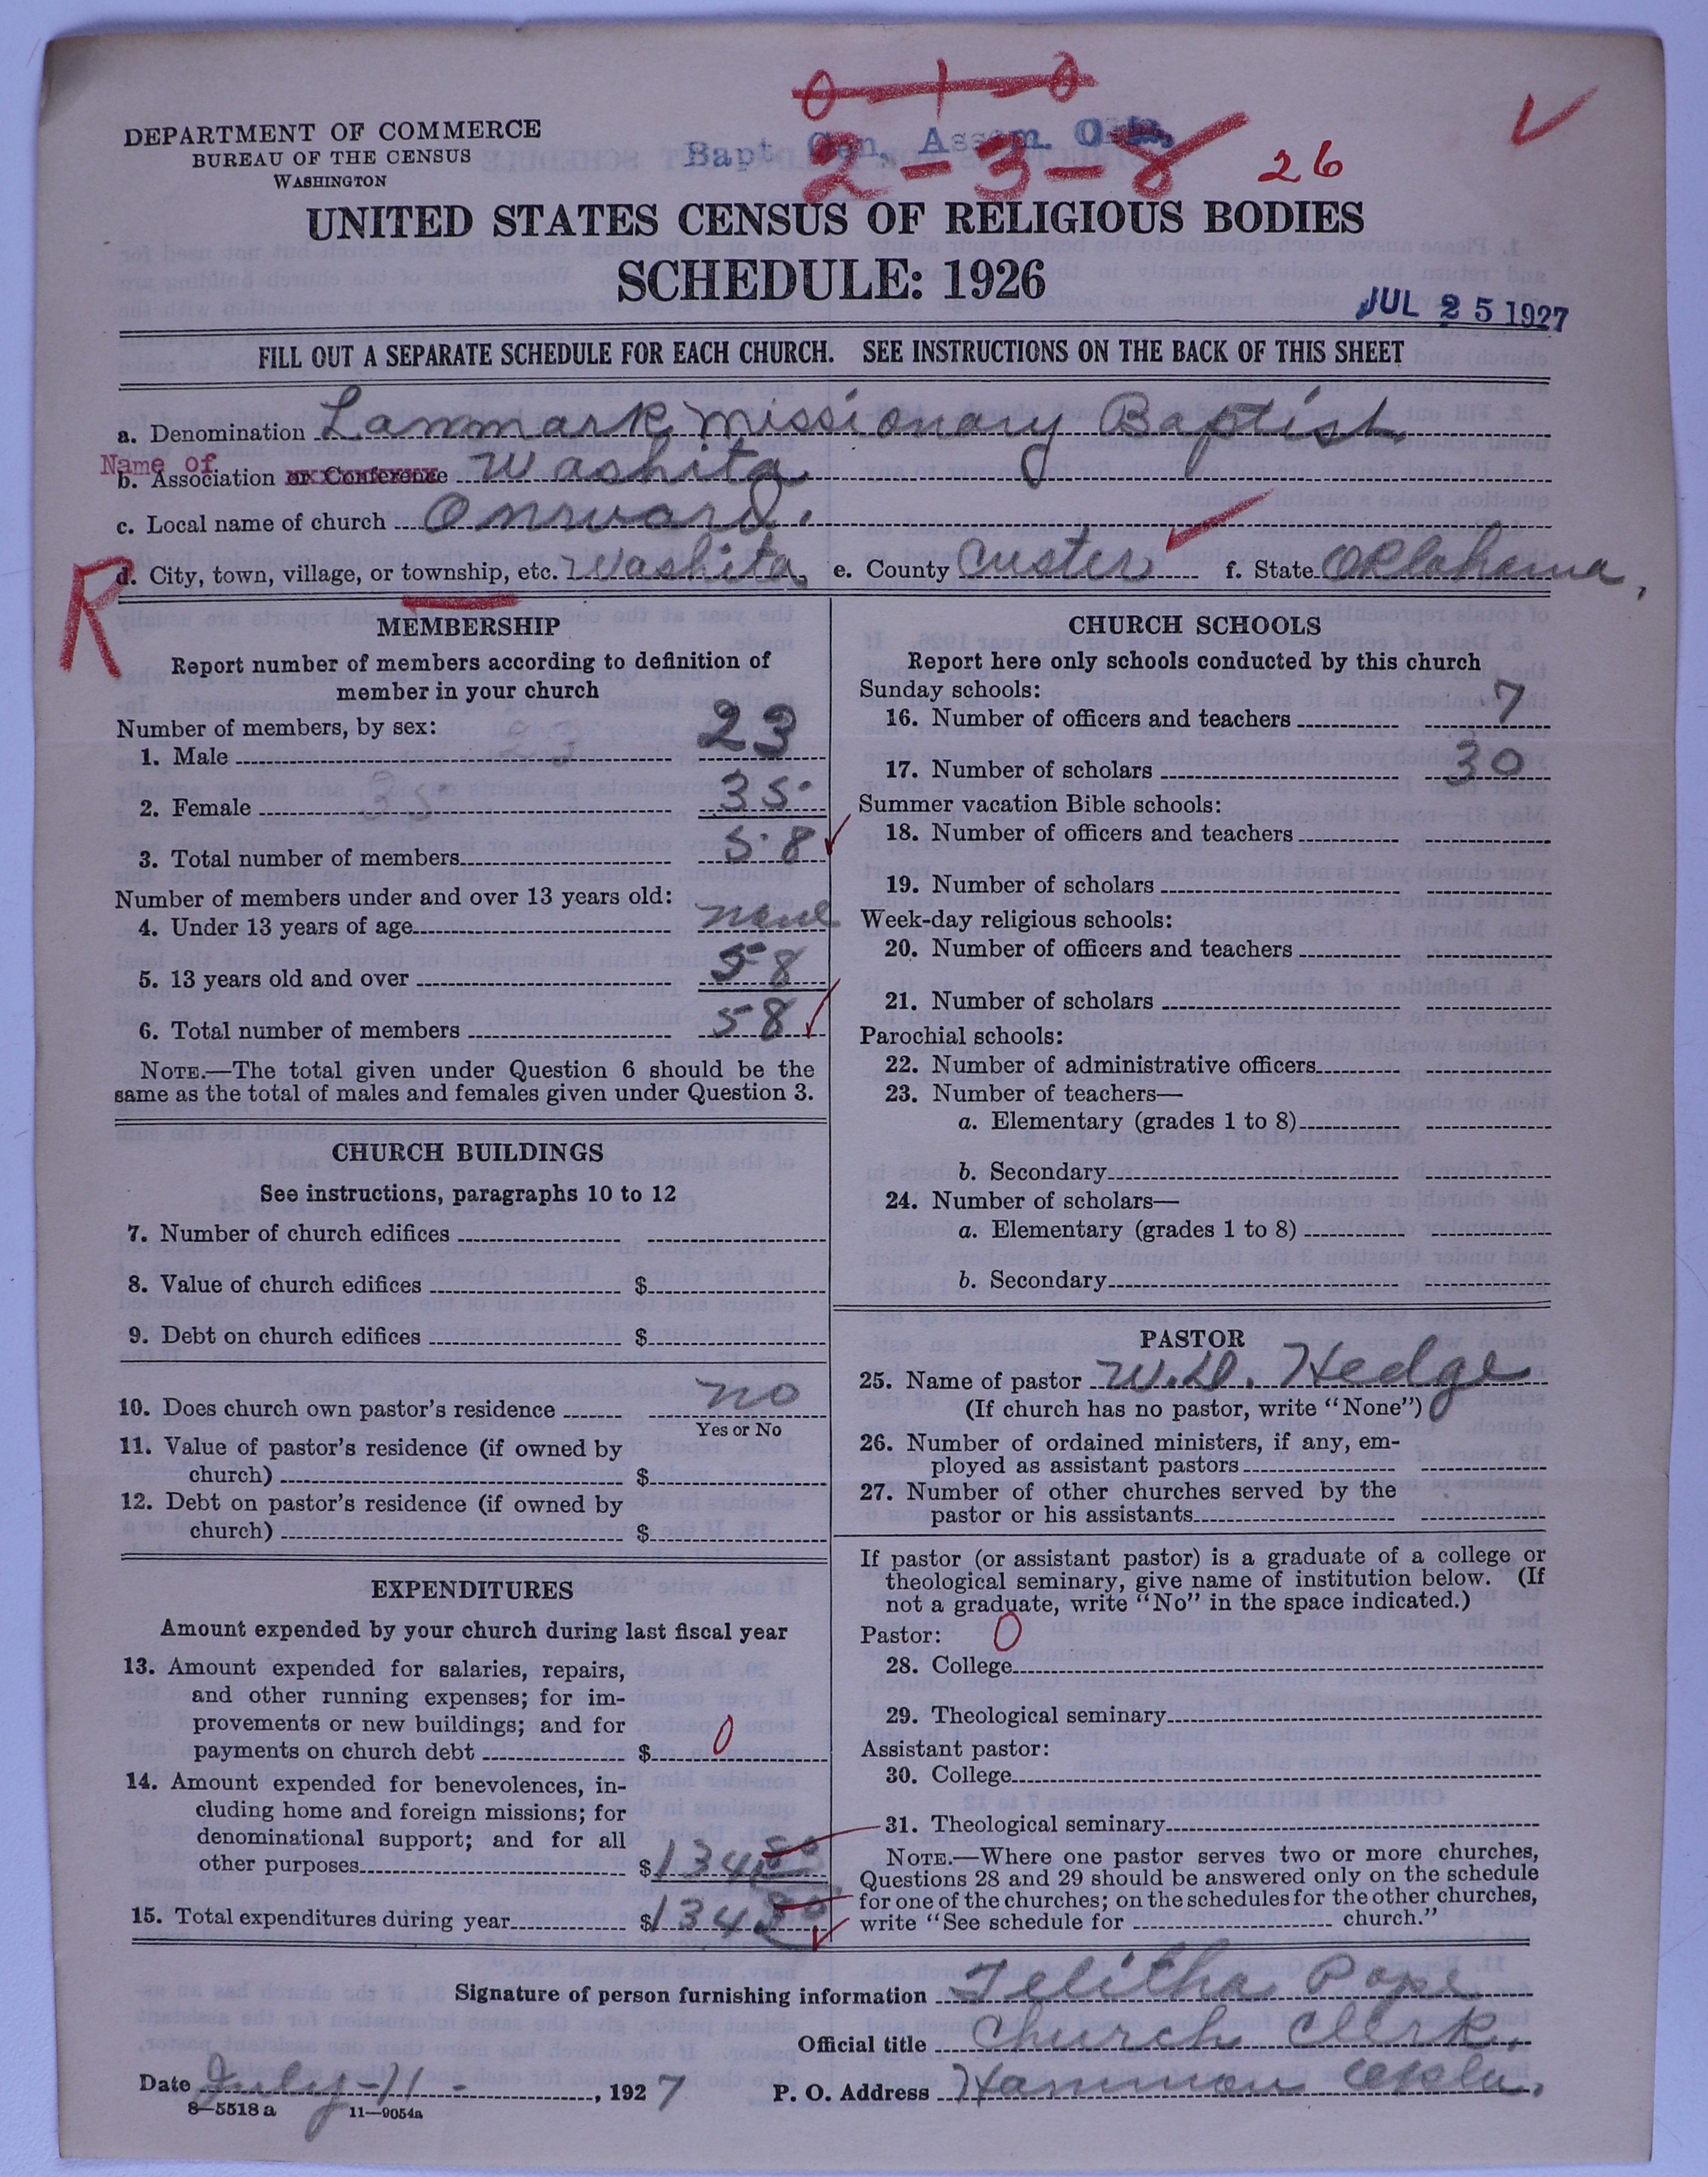 0-1-0
DEPARTMENT OF COMMERCE
BUREAU OF THE CENSUS
WASHINGTON
Bapt. Gen. Assem. Okla.
2-3-8
26
UNITED STATES CENSUS OF RELIGIOUS BODIES
SCHEDULE: 1926
JUL 25 1927
FILL OUT A SEPARATE SCHEDULE FOR EACH CHURCH. SEE INSTRUCTIONS ON THE BACK OF THIS SHEET
a. Denomination Lanmark Missionary Baptist
Name of
b. Association or Conference Washita
c. Local name of church Onrward.
R
d. City, town, village, or township, etc. Washita, e. County Custer f. State Oklahoma,
MEMBERSHIP
Report number of members according to definition of
member in your church
Number of members, by sex:
1. Male 23
2. Female 35
3. Total number of members 58
Number of members under and over 13 years old:
4. Under 13 years of age none
5. 13 years old and over 58
6. Total number of members 58
NOTE.—The total given under Question 6 should be the
same as the total of males and females given under Question 3.
CHURCH BUILDINGS
See instructions, paragraphs 10 to 12
7. Number of church edifices
8. Value of church edifices $
9. Debt on church edifices $
10. Does church own pastor's residence no
Yes or No
11. Value of pastor's residence (if owned by
church) $
12. Debt on pastor's residence (if owned by
church) $
EXPENDITURES
Amount expended by your church during last fiscal year
13. Amount expended for salaries, repairs,
and other running expenses; for im-
provements or new buildings; and for
payments on church debt $ 0
14. Amount expended for benevolences, in-
cluding home and foreign missions; for
denominational support; and for all
other purposes $134
15. Total expenditures during year $134
CHURCH SCHOOLS
Report here only schools conducted by this church
Sunday schools:
16. Number of officers and teachers 7
17. Number of scholars 30
Summer vacation Bible schools:
18. Number of officers and teachers
19. Number of scholars
Week-day religious schools:
20. Number of officers and teachers
21. Number of scholars
Parochial schools:
22. Number of administrative officers
23. Number of teachers—
a. Elementary (grades 1 to 8)
b. Secondary
24. Number of scholars—
a. Elementary (grades 1 to 8)
b. Secondary
PASTOR
25. Name of pastor W.D. Hedge
(If church has no pastor, write "None")
26. Number of ordained ministers, if any, em-
ployed as assistant pastors
27. Number of other churches served by the
pastor or his assistants
If pastor (or assistant pastor) is a graduate of a college or
theological seminary, give name of institution below. (If
not a graduate, write "No" in the space indicated.)
Pastor: 0
28. College
29. Theological seminary
Assistant pastor:
30. College
31. Theological seminary
NOTE.—Where one pastor serves two or more churches,
Questions 28 and 29 should be answered only on the schedule
for one of the churches; on the schedules for the other churches,
write "See schedule for church."
Signature of person furnishing information Telitha Pope
Official title Church Clerk.
Date July-11-, 1927 P. O. Address Hammon Okla.
8—5518 a 11—9054a